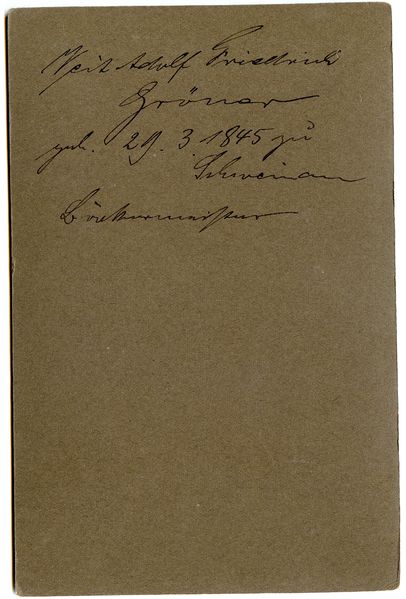 Veit Adolf Friedrich
Gröner
geb. 29. 3 1845 zu
Schweinau
Bäckermeister